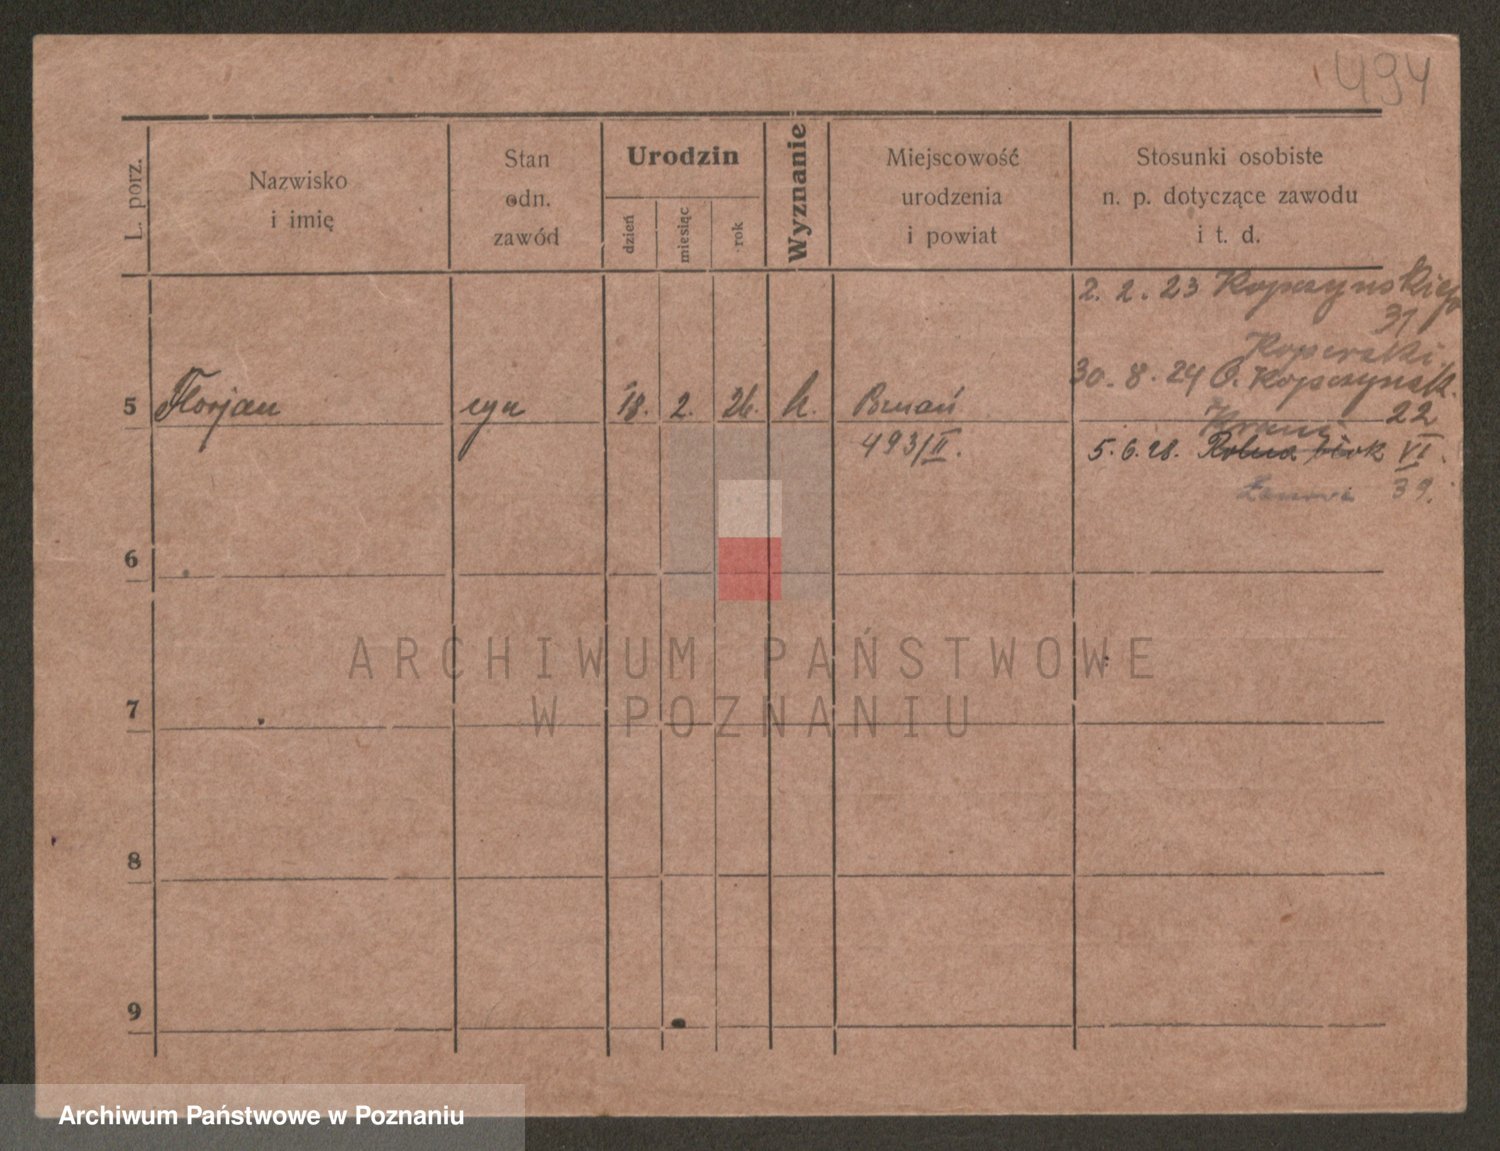 494
L. porz.
Nazwisko
i imię
Stan
odn.
zawód
Urodzin
dzień
miesiąc
rok
Wyznanie
Miejscowość
urodzenia
i powiat
Stosunki osobiste
n. p. dotyczące zawodu
i t. d.
2. 2. 23 Kopczyńskiego
31
Koperski
30. 8. 24 O. Kopczyńsk.
22
5 Florjan syn 18. 2. 26. k. Poznań
493/II.
5. 6. 28. Rolna blok VI.
39.
6
7
8
9
ARCHIWUM PAŃSTWOWE
W POZNANIU
Archiwum Państwowe w Poznaniu